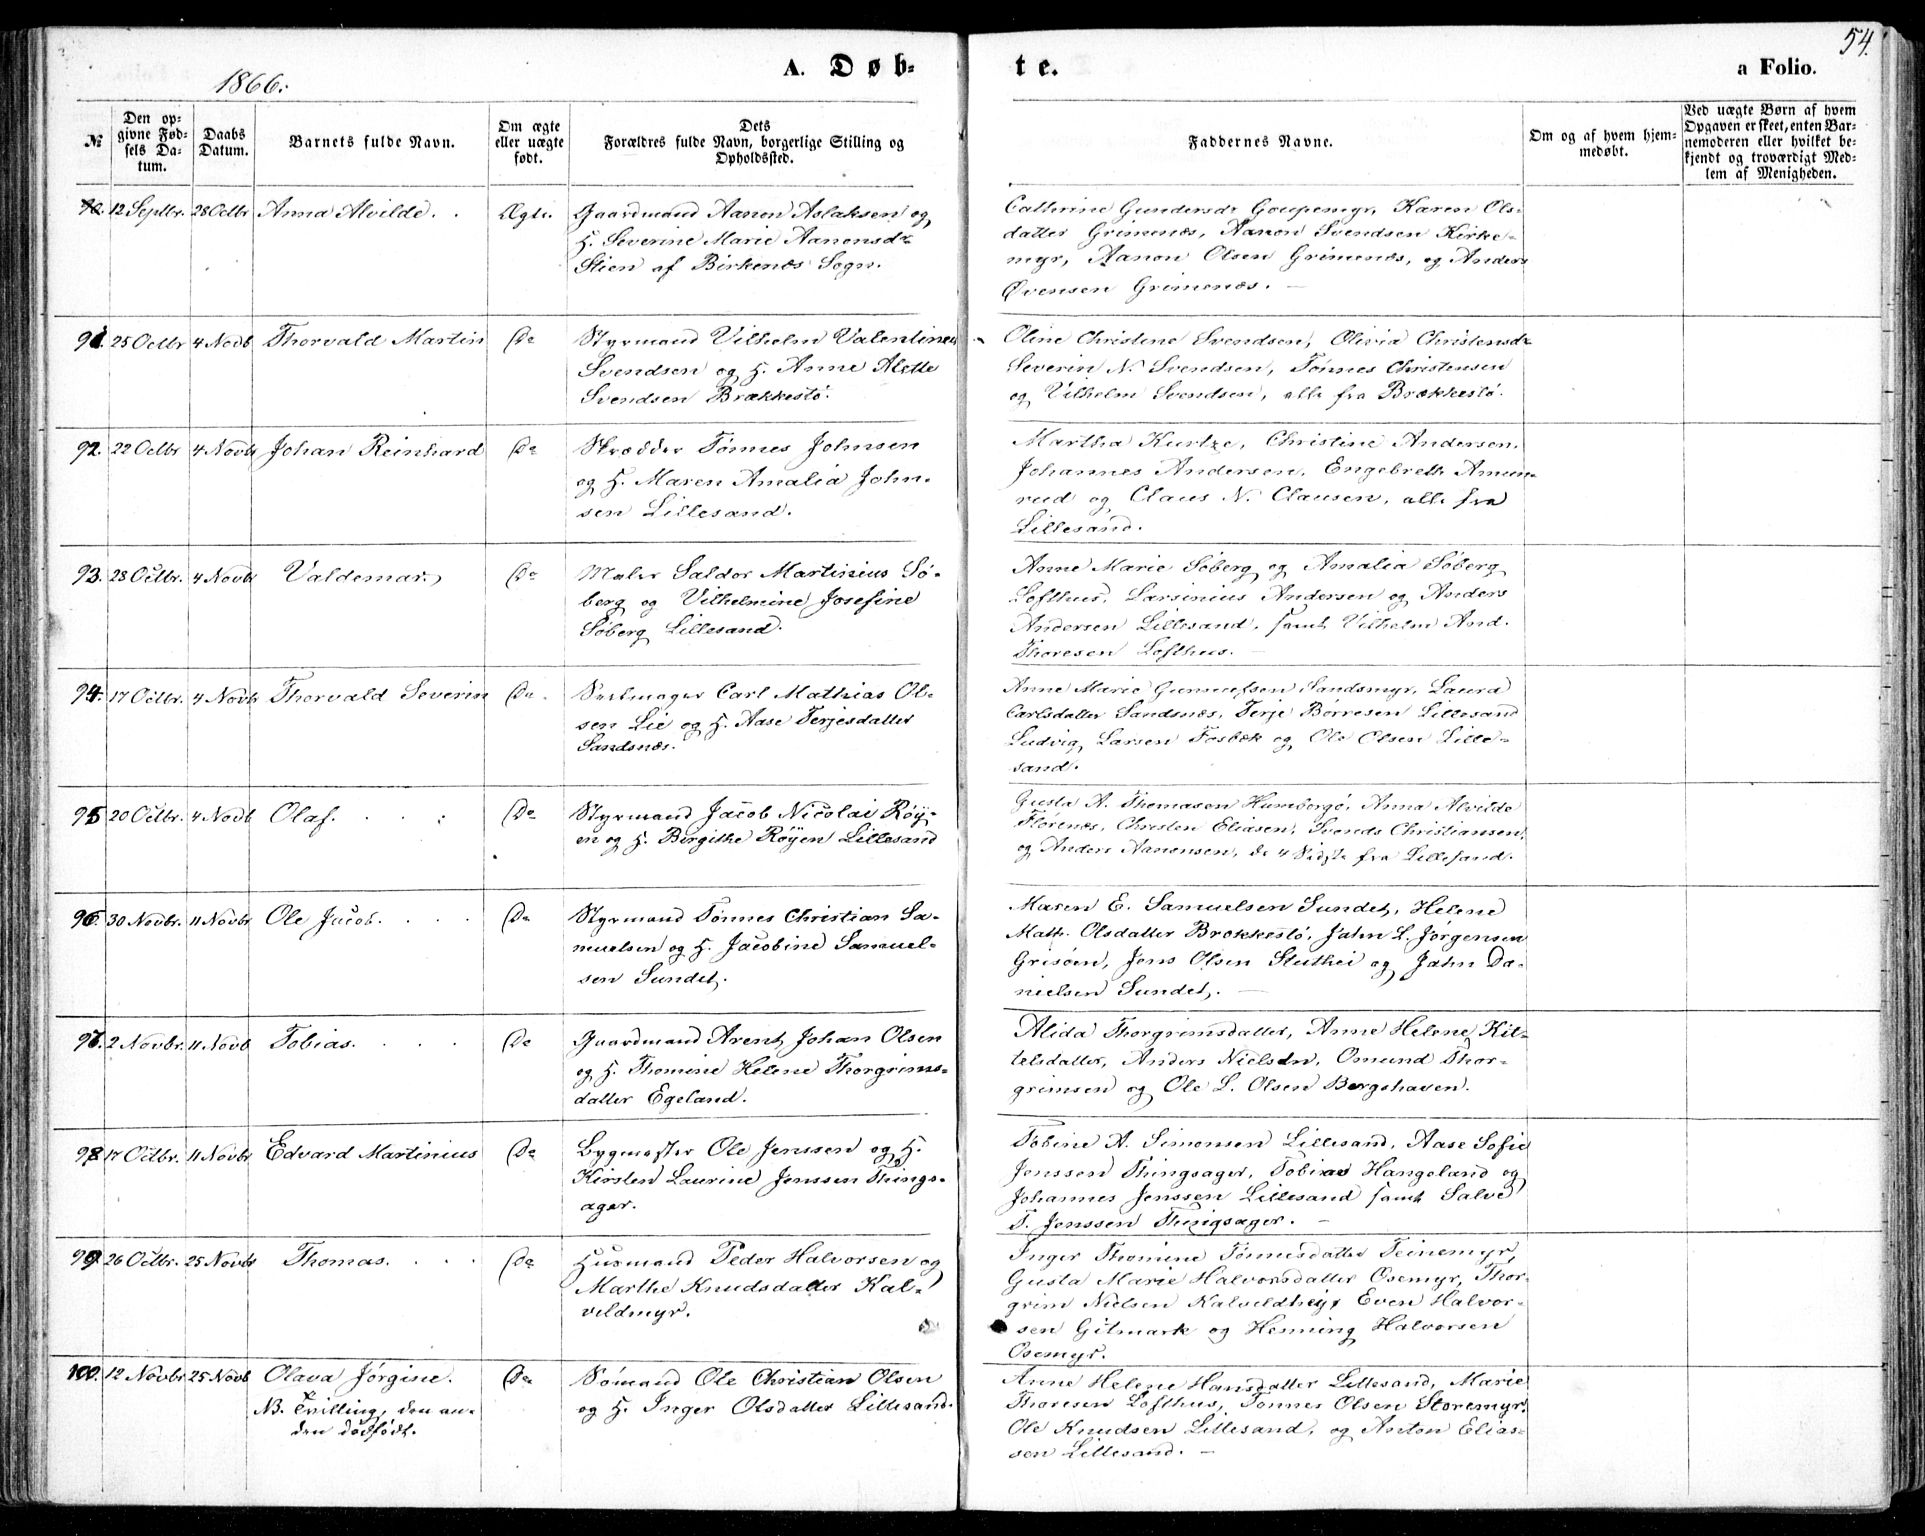 54.
1866.
A. Døb-
te.
a Folio.
№
Den op-
givne Fød-
sels Da-
tum.
Daabs
Datum.
Barnets fulde Navn.
Om ægte
eller uægte
født.
Dets
Forældres fulde Navn, borgerlige Stilling og
Opholdssted.
Faddernes Navne.
Om og af hvem hjem-
medøbt.
Ved uægte Børn af hvem
Opgaven er skeet, enten Bar-
nemoderen eller hvilket be-
kjendt og troværdigt Med-
lem af Menigheden.
90. 12 Septbr. 28 Octbr Anna Alvilde. Ægte.
Gaardmand Aanon Aslaksen og
H. Severine Marie Aanonsdr
Stien af Birkenæs Sogn.
Cathrine Gundersdr Goupemyr, Karen Ols-
datter Grimenæs, Aanon Svendsen Kirke-
myr, Aanon Olsen Grimenæs, og Anders
Ovensen Grimenæs.
91. 25 Octbr 4 Novb Thorvald Martin Do
Styrmand Vilhelm Valentinus
Svendsen og H. Anne Alette
Svendsen Brækkestø.
Oline Christene Svendsen, Olivia Christensdr
Severin N. Svendsen, Tønnes Christensen
og Vilhelm Svendsen, alle fra Brækkestø.
92. 22 Octbr 4 Novbr Johan Reinhard Do
Skrædder Tønnes Johnsen
og H. Maren Amalia John-
sen Lillesand.
Martha Kurtze, Christine Andersen,
Johannes Andersen, Engebrett Amun-
rud og Claus N. Clausen, alle fra
Lillesand.
93. 28 Octbr. 4 Novbr Valdemar. Do
Maler Saldor Martinius Sø-
berg og Vilhelmine Josefine
Søberg Lillesand.
Anne Marie Søberg og Amalia Søberg
Lofthus, Larsinius Andersen og Anders
Andersen Lillesand, samt Vilhelm And.
Thoresen Lofthus.
94. 17 Octbr. 4 Novbr Thorvald Severin Do
Seilmager Carl Mathias Ol-
sen Lie og H. Aase Terjesdatter
Sandsnæs.
Anne Marie Gunnufsen Sandsmyr, Laura
Carlsdatter Sandsnæs, Terje Børresen Lillesand
Ludvig Larsen Fosbæk og Ole Olsen Lille-
sand.
95 20 Octbr. 4 Novb Olaf. Do
Styrmand Jacob Nicolai Røy-
en og H. Birgithe Røyen Lillesand
Gusta A. Thomasen Humbergø, Anna Alvilde
Florenæs, Christen Eliasen, Svends Christiansen,
og Anders Aanonsen, de 4 Sidste fra Lillesand.
96. 30 Novbr. 11 Novbr Ole Jacob. Do
Styrmand Tønnes Christian Sa-
muelsen og H. Jacobine Samuel-
sen Sundet.
Maren E. Samuelsen Sundet, Helene
Math. Olsdatter Brækkestø, Jahn L. Jørgensen
Grisøen, Jens Olsen Sluthei og Jahn Da-
nielsen Sundet.
97. 2 Novbr. 11 Novb Tobias. Do
Gaardmand Arent Johan Olsen
og H. Thomine Helene Thorgrims-
datter Egeland.
Alida Thorgrimsdatter, Anne Helene Kit-
telsdatter, Anders Nielsen, Omund Thor-
grimsen og Ole L. Olsen Bergshaven.
98. 17 Octbr. 11 Novbr Edvard Martinius Do
Bygmester Ole Jenssen og H.
Kirsten Laurine Jenssen Things-
ager.
Tobine A. Simonsen Lillesand, Aase Sofie
Jenssen Thingsager, Tobias Hangeland og
Johannes Jenssen Lillesand samt Salve
T. Jenssen Thingsager.
99. 26 Octbr. 25 Novbr Thomas. Do
Husmand Peder Halvorsen og
Marthe Knudsdatter Kal-
vildmyr.
Inger Thomine Tønnesdatter Teinemyr,
Gusta Marie Halvorsdatter Osemyr, Thor-
grim Nielsen Kalveldhei, Even Halvor-
sen Gitmark og Henning Halvorsen
Osemyr.
100. 12 Novbr 25 Novb Olava Jørgine. Do
NB. Tvilling, den an-
den dødfødt.
Sømand Ole Christian Olsen
og H. Inger Olsdatter Lillesand.
Anne Helene Hansdatter Lillesand, Marie
Thoresen Lofthus, Tønnes Olsen Storemyr,
Ole Knudsen Lillesand, og Anton Elias-
sen Lillesand.